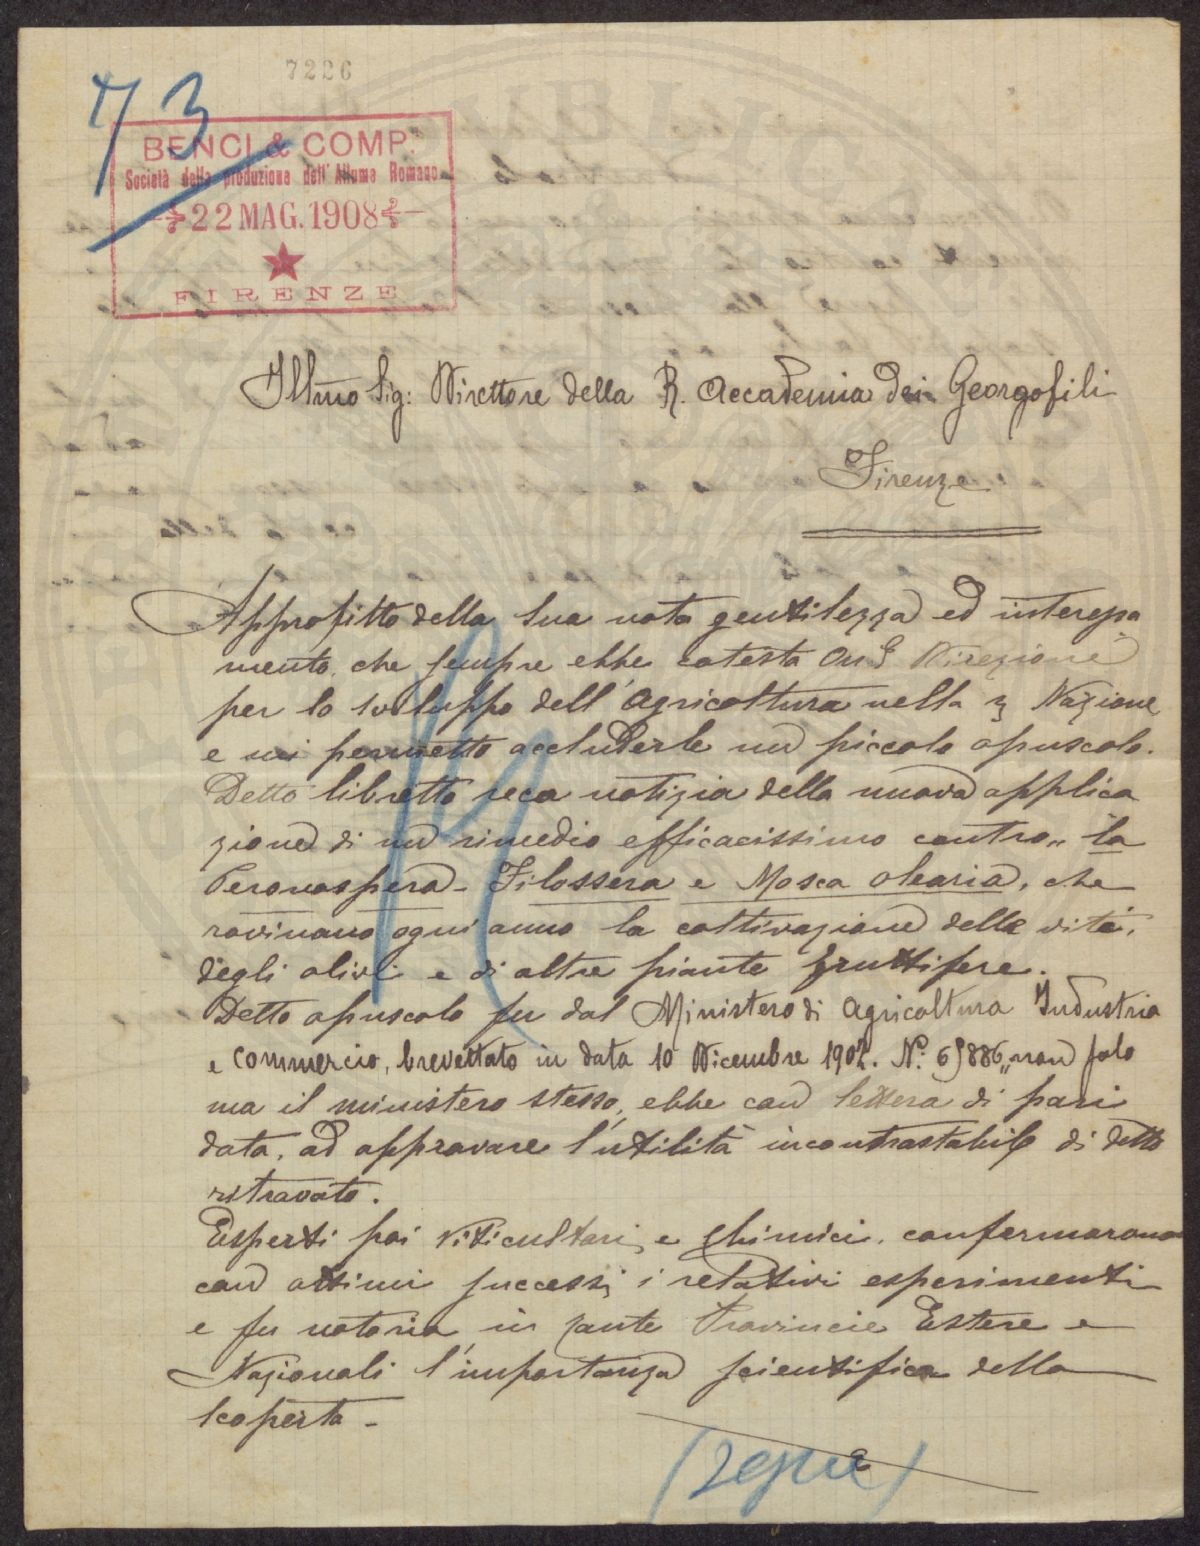 7226
73
BENCI & COMP.
Società della produzione dell'Allume Romano
22 MAG. 1908
FIRENZE
Illmo Sig: Direttore della R. Accademia dei Georgofili
Firenze
Approfitto della Sua nota gentilezza ed interessa
mento, che sempre ebbe cotesta On. Direzione
per lo sviluppo dell'Agricoltura nella Nazione
e mi permetto accluderle un piccolo opuscolo.
Detto libretto reca notizia della nuova applica
zione di un rimedio efficacissimo contro „ la
Peronospera - Filossera e Mosca olearia, che
rovinano ogni anno la coltivazione delle vite,
degli olivi e di altre piante fruttifere.
Detto opuscolo fu dal Ministero di Agricoltura Industria
e Commercio, brevettato in data 10 Dicembre 1902. No. 65886 „ non solo
ma il ministero stesso, ebbe con lettera di pari
data, ad approvare l'utilità incontrastabile di detto
ritrovato.
Esperti poi viticultori, e Chimici, confermarono
con ottimi successi, i relativi esperimenti
e fu notoria in tante Provincie Estere e
Nazionali l'importanza scientifica della
scoperta -
(segue)